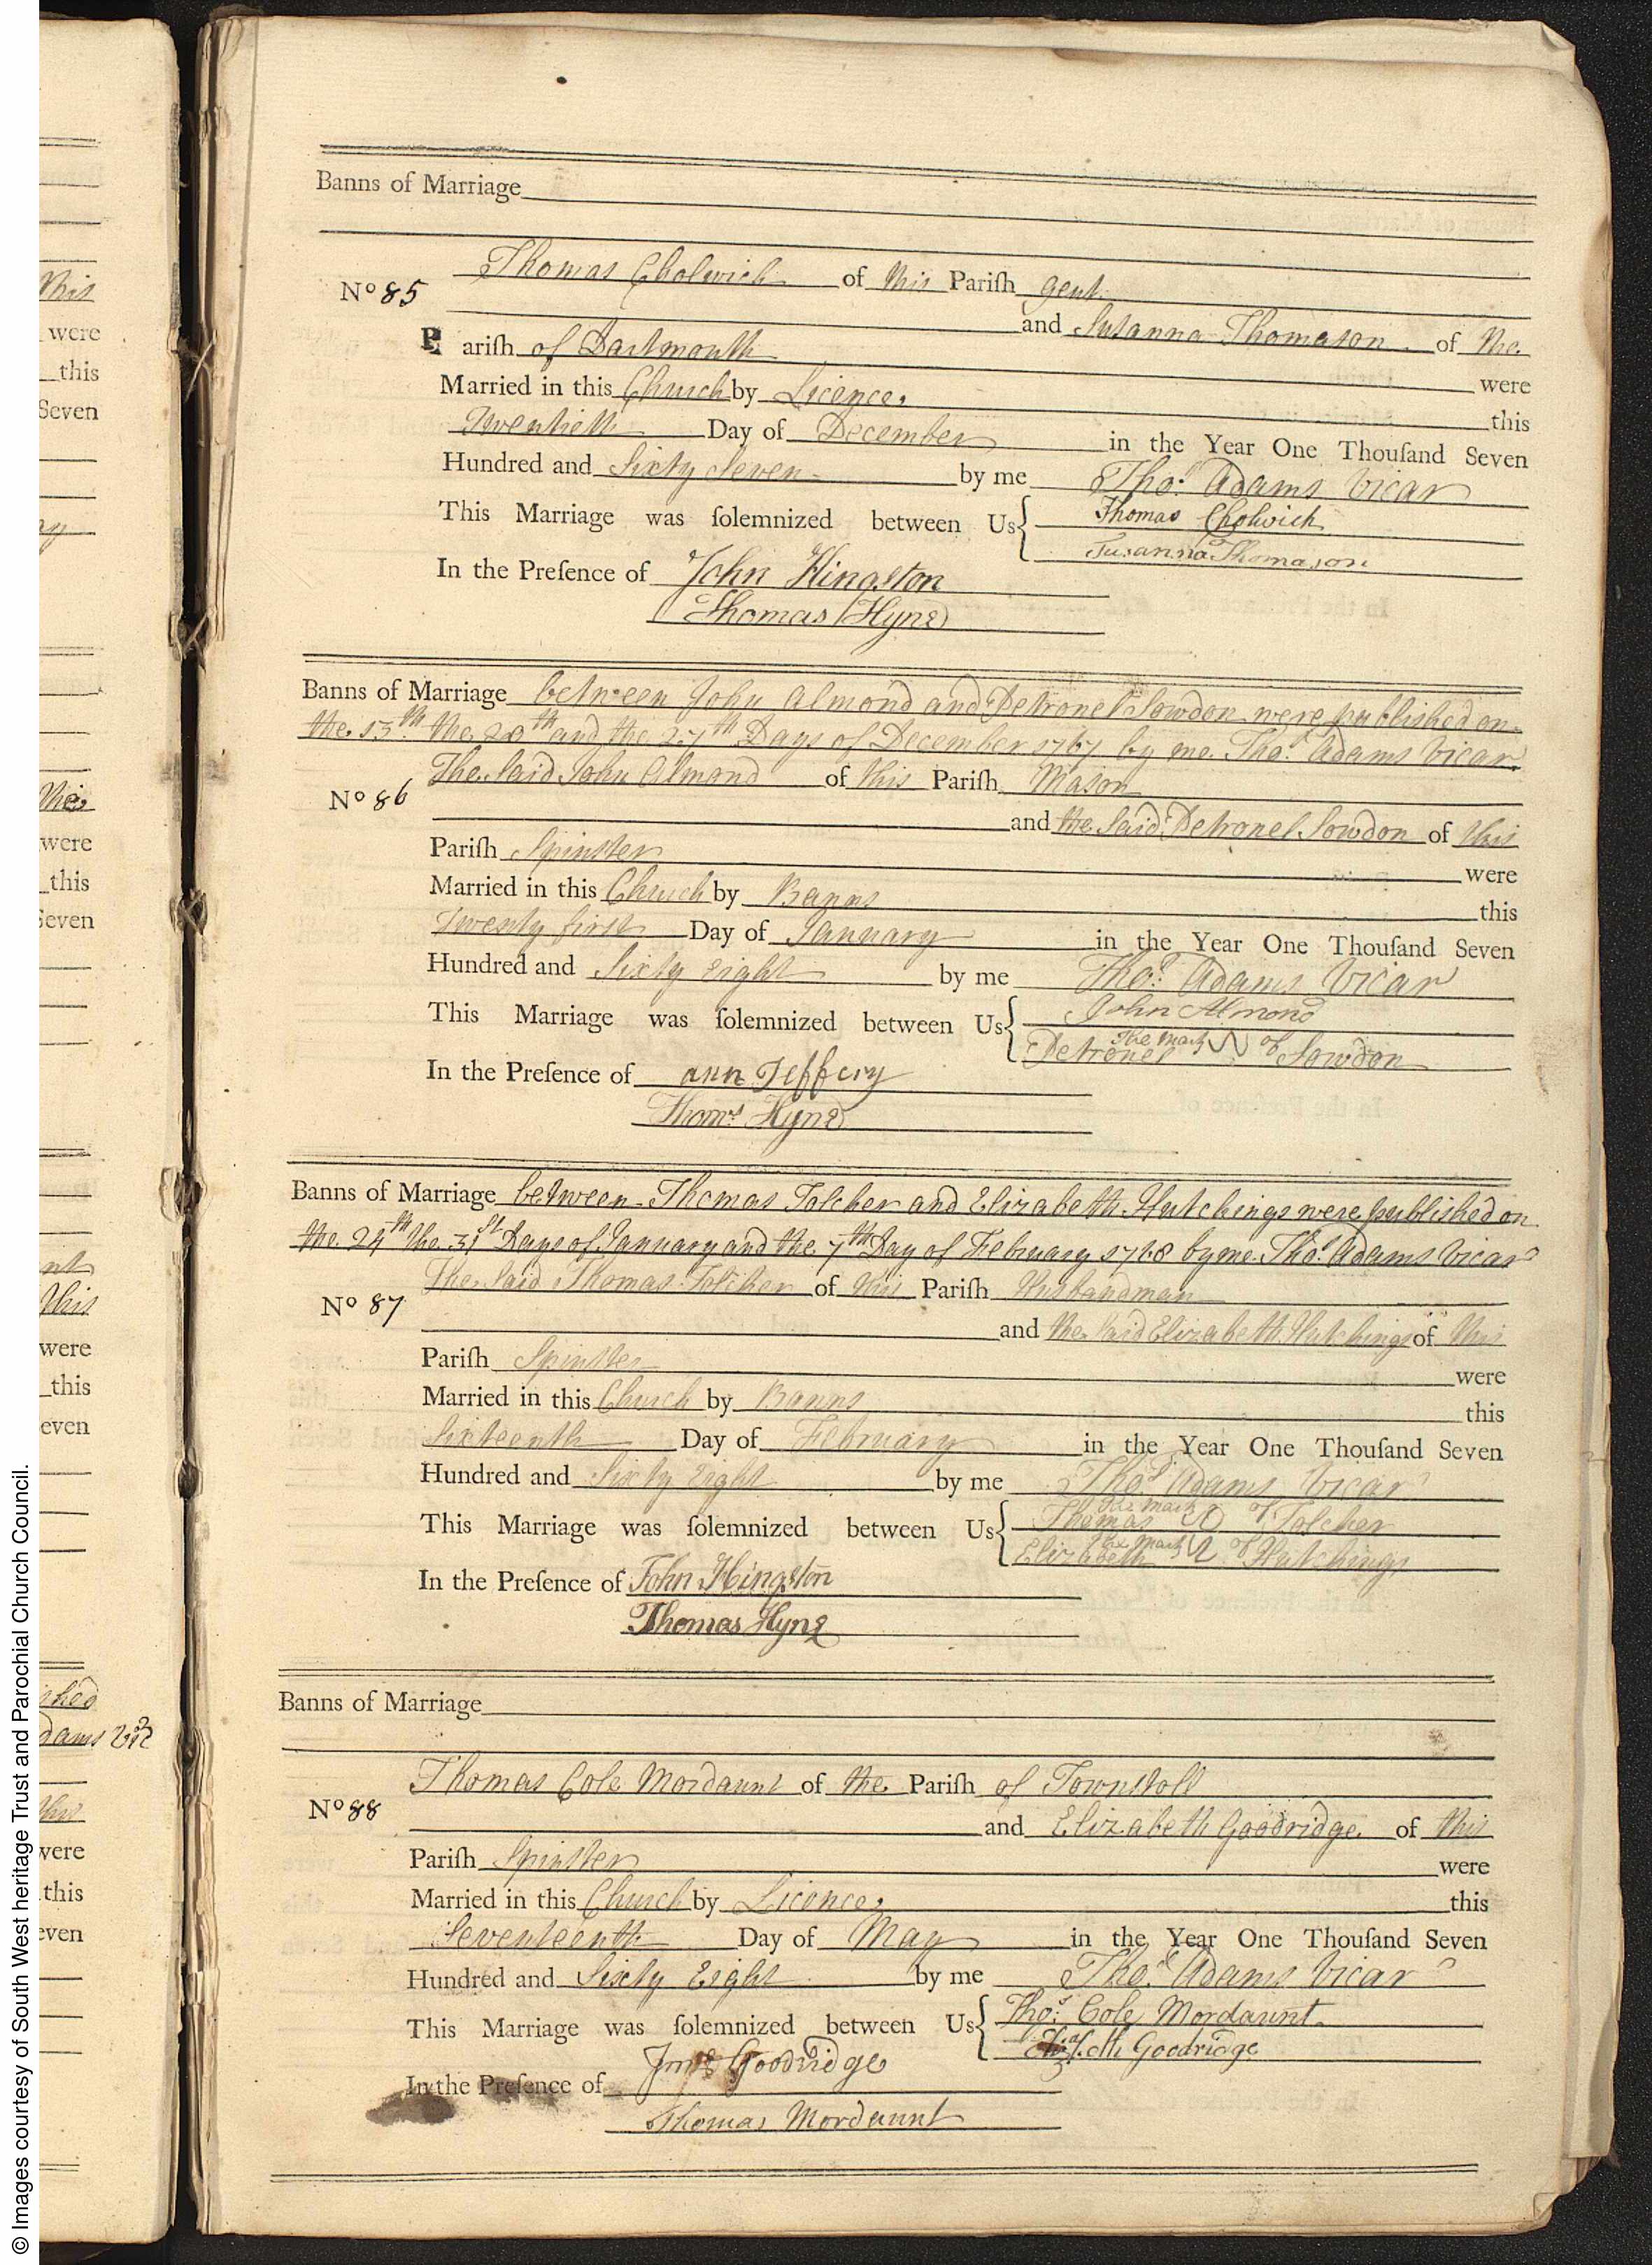 Banns of Marriage
Thomas Cholwich of this Pariſh Gent.
No 85
and Susanna Thomason of the
Pariſh of Dartmouth were
Married in this Church by Licence this
Twentieth Day of December in the Year One Thouſand Seven
Hundred and Sixty Seven by me Tho.s Adams Vicar
This Marriage was ſolemnized between Us Thomas Cholwich
Susanna Thomason
In the Preſence of John Hingston
Thomas Hyne
Banns of Marriage between John Almond and Petronel Sowdon were published on
the 13th the 20th and the 27th Days of December 1767 by me Tho.s Adams Vicar
The Said John Almond of this Pariſh Mason
No 86
and the Said Petronel Sowdon of this
Pariſh Spinster were
Married in this Church by Banns this
Twenty first Day of January in the Year One Thouſand Seven
Hundred and Sixty Eight by me Tho.s Adams Vicar
This Marriage was ſolemnized between Us John Almond
The Mark of
Petronel Sowdon
In the Preſence of ann Jeffery
Thoms Hyne
Banns of Marriage between Thomas Tolcher and Elizabeth Hutchings were published on
the 24th the 31st Days of January and the 7th Day of February 1768 by me Tho.s Adams Vicar
The Said Thomas Tolcher of this Pariſh Husbandman
No 87
and the Said Elizabeth Hutchings of this
Pariſh Spinster were
Married in this Church by Banns this
Sixteenth Day of February in the Year One Thouſand Seven
Hundred and Sixty Eight by me Tho.s Adams Vicar
This Marriage was ſolemnized between Us Thomas The Mark of Tolcher
Elizabeth The Mark of Hutchings
In the Preſence of John Hingston
Thomas Hyne
Banns of Marriage
Thomas Cole Mordaunt of the Pariſh of Townstall
No 88
and Elizabeth Goodridge of this
Pariſh Spinster were
Married in this Church by Licence this
Seventeenth Day of May in the Year One Thouſand Seven
Hundred and Sixty Eight by me Tho.s Adams Vicar
This Marriage was ſolemnized between Us Tho.s Cole Mordaunt
Goodridge
In the Preſence of Goodridge
Thomas Mordaunt
this
were
this
Seven
were
this
Seven
this
were
this
even
were
this
even
© Images courtesy of South West heritage Trust and Parochial Church Council.